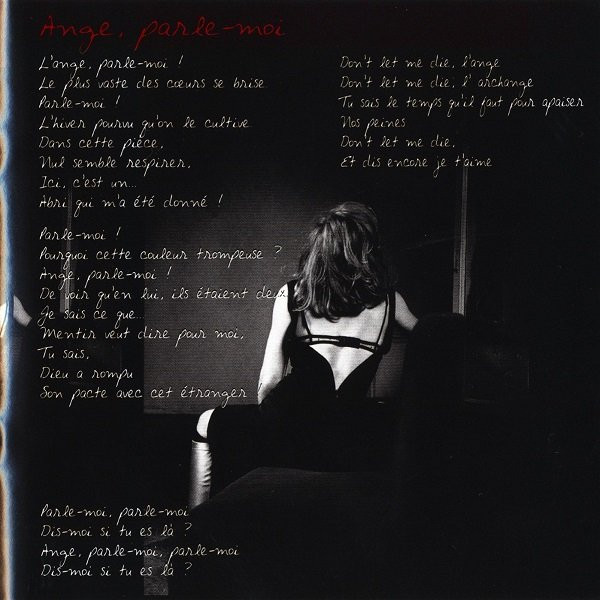 Ange, parle-moi
L'ange, parle-moi !
Le plus vaste des cœurs se brise
Parle-moi !
L'hiver pourvu qu'on le cultive
Dans cette pièce,
Nul semble respirer,
Ici, c'est un...
Abri qui m'a été donné !
Parle-moi !
Pourquoi cette couleur trompeuse ?
Ange, parle-moi !
De voir qu'en lui, ils étaient deux
Je sais ce que...
Mentir veut dire pour moi,
Tu sais,
Dieu a rompu
Son pacte avec cet étranger
Parle-moi, parle-moi
Dis-moi si tu es là ?
Ange, parle-moi, parle-moi
Dis-moi si tu es là ?
Don't let me die, l'ange
Don't let me die, l'archange
Tu sais le temps qu'il faut pour apaiser
Nos peines
Don't let me die,
Et dis encore je t'aime